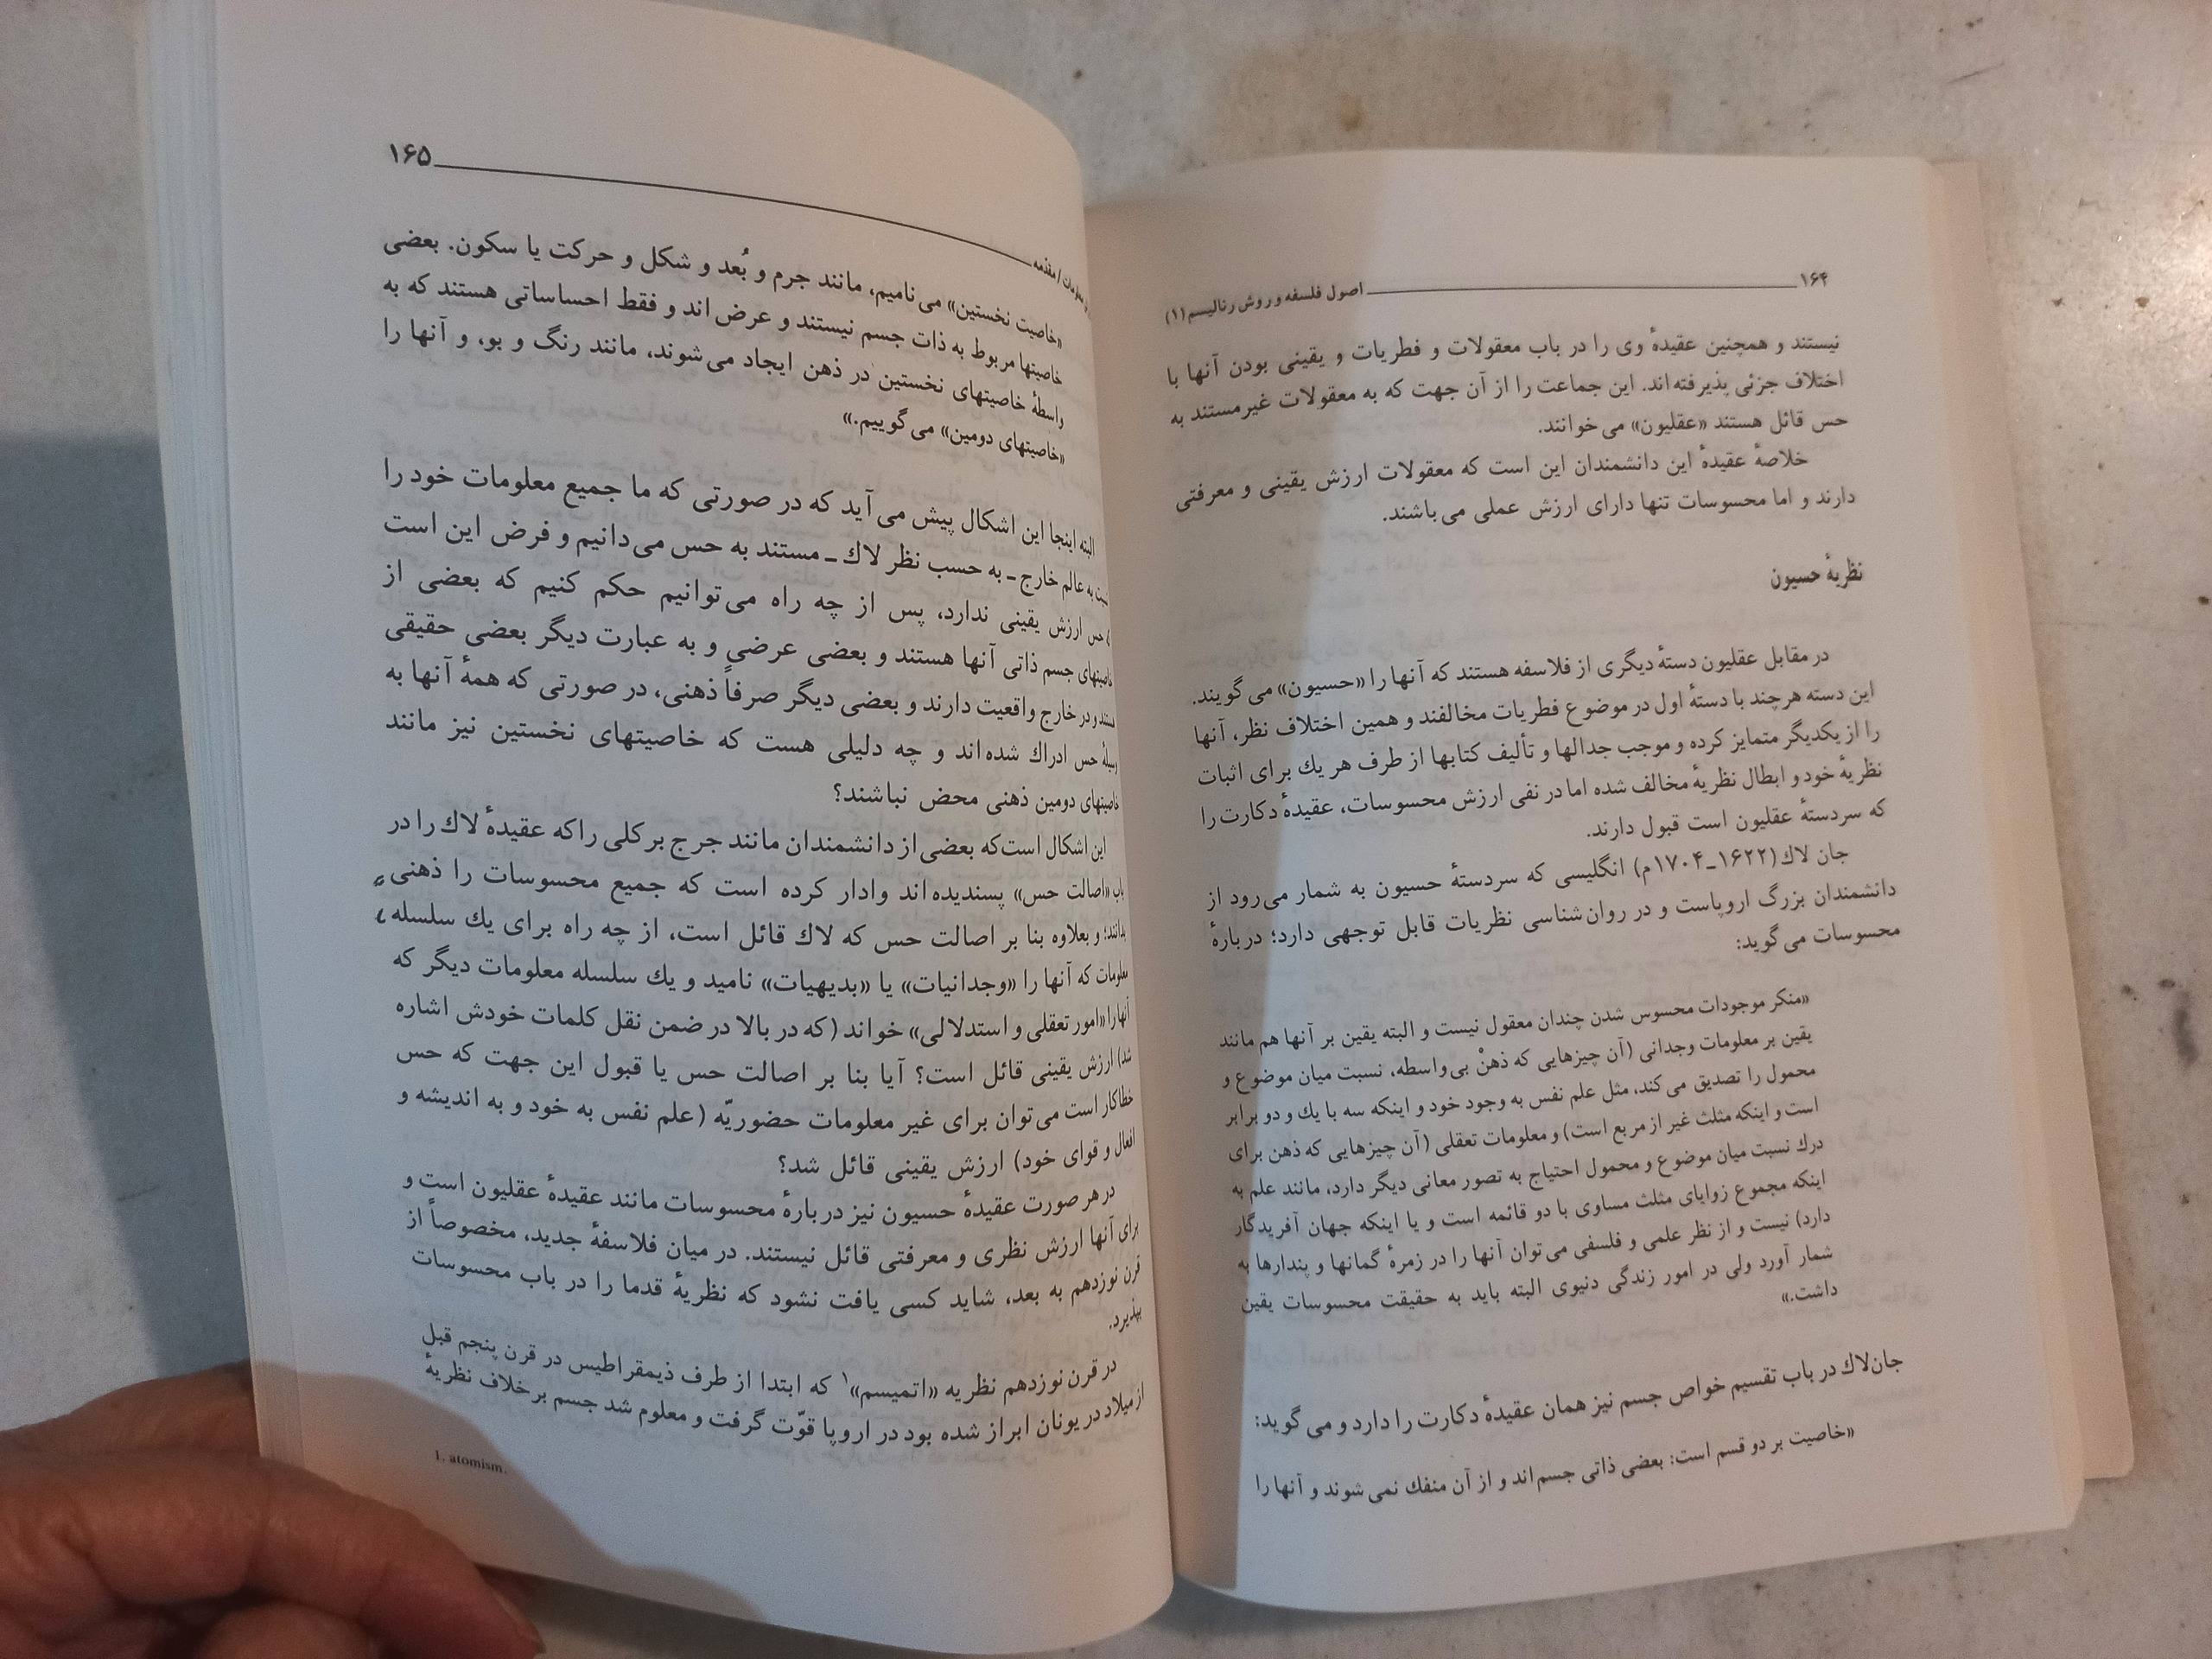 ۱۶۴
اصول فلسفه و روش رئالیسم (۱)
نیستند و همچنین عقیدهٔ وی را در باب معقولات و فطریات و یقینی بودن آنها با
اختلاف جزئی پذیرفته‌اند. این جماعت را از آن جهت که به معقولات غیرمستند به
حس قائل هستند «عقلیون» می‌خوانند.
خلاصهٔ عقیدهٔ این دانشمندان این است که معقولات ارزش یقینی و معرفتی
دارند و اما محسوسات تنها دارای ارزش عملی می‌باشند.
نظریهٔ حسیون
در مقابل عقلیون دستهٔ دیگری از فلاسفه هستند که آنها را «حسیون» می‌گویند.
این دسته هرچند با دستهٔ اول در موضوع فطریات مخالفند و همین اختلاف نظر، آنها
را از یکدیگر متمایز کرده و موجب جدالها و تألیف کتابها از طرف هر یك برای اثبات
نظریهٔ خود و ابطال نظریهٔ مخالف شده اما در نفی ارزش محسوسات، عقیدهٔ دکارت را
که سردستهٔ عقلیون است قبول دارند.
جان لاك (۱۶۲۲ـ۱۷۰۴م) انگلیسی که سردستهٔ حسیون به شمار می‌رود از
دانشمندان بزرگ اروپاست و در روان‌شناسی نظریات قابل توجهی دارد؛ دربارهٔ
محسوسات می‌گوید:
«منکر موجودات محسوس شدن چندان معقول نیست و البته یقین بر آنها هم مانند
یقین بر معلومات وجدانی (آن چیزهایی که ذهنْ بی‌واسطه، نسبت میان موضوع و
محمول را تصدیق می‌کند، مثل علم نفس به وجود خود و اینکه سه با یك و دو برابر
است و اینکه مثلث غیر از مربع است) و معلومات تعقلی (آن چیزهایی که ذهن برای
درك نسبت میان موضوع و محمول احتیاج به تصور معانی دیگر دارد، مانند علم به
اینکه مجموع زوایای مثلث مساوی با دو قائمه است و یا اینکه جهان آفریدگار
دارد) نیست و از نظر علمی و فلسفی می‌توان آنها را در زمرهٔ گمانها و پندارها به
شمار آورد ولی در امور زندگی دنیوی البته باید به حقیقت محسوسات یقین
داشت.»
جان لاك در باب تقسیم خواص جسم نیز همان عقیدهٔ دکارت را دارد و می‌گوید:
«خاصیت بر دو قسم است: بعضی ذاتی جسم‌اند و از آن منفك نمی‌شوند و آنها را
معلومات / مقدّمه
۱۶۵
«خاصیت نخستین» می‌نامیم، مانند جرم و بُعد و شکل و حرکت یا سکون. بعضی
خاصیتها مربوط به ذات جسم نیستند و عرض‌اند و فقط احساساتی هستند که به
واسطهٔ خاصیتهای نخستین در ذهن ایجاد می‌شوند، مانند رنگ و بو، و آنها را
«خاصیتهای دومین» می‌گوییم.»
البته اینجا این اشکال پیش می‌آید که در صورتی که ما جمیع معلومات خود را
به عالم خارج ـ به حسب نظر لاك ـ مستند به حس می‌دانیم و فرض این است
حس ارزش یقینی ندارد، پس از چه راه می‌توانیم حکم کنیم که بعضی از
خاصیتهای جسم ذاتی آنها هستند و بعضی عرضی و به عبارت دیگر بعضی حقیقی
هستند و در خارج واقعیت دارند و بعضی دیگر صرفاً ذهنی، در صورتی که همهٔ آنها به
وسیلهٔ حس ادراك شده‌اند و چه دلیلی هست که خاصیتهای نخستین نیز مانند
خاصیتهای دومین ذهنی محض نباشند؟
این اشکال است که بعضی از دانشمندان مانند جرج برکلی را که عقیدهٔ لاك را در
باب «اصالت حس» پسندیده‌اند وادار کرده است که جمیع محسوسات را ذهنی
بدانند؛ و بعلاوه بنا بر اصالت حس که لاك قائل است، از چه راه برای یك سلسله
معلومات که آنها را «وجدانیات» یا «بدیهیات» نامید و یك سلسله معلومات دیگر که
آنها را «امور تعقلی و استدلالی» خواند (که در بالا در ضمن نقل کلمات خودش اشاره
شد) ارزش یقینی قائل است؟ آیا بنا بر اصالت حس یا قبول این جهت که حس
خطاکار است می‌توان برای غیر معلومات حضوریّه (علم نفس به خود و به اندیشه و
افعال و قوای خود) ارزش یقینی قائل شد؟
در هر صورت عقیدهٔ حسیون نیز دربارهٔ محسوسات مانند عقیدهٔ عقلیون است و
برای آنها ارزش نظری و معرفتی قائل نیستند. در میان فلاسفهٔ جدید، مخصوصاً از
قرن نوزدهم به بعد، شاید کسی یافت نشود که نظریهٔ قدما را در باب محسوسات
بپذیرد.
در قرن نوزدهم نظریه «اتمیسم»۱ که ابتدا از طرف ذیمقراطیس در قرن پنجم قبل
از میلاد در یونان ابراز شده بود در اروپا قوّت گرفت و معلوم شد جسم برخلاف نظریهٔ
1. atomism.